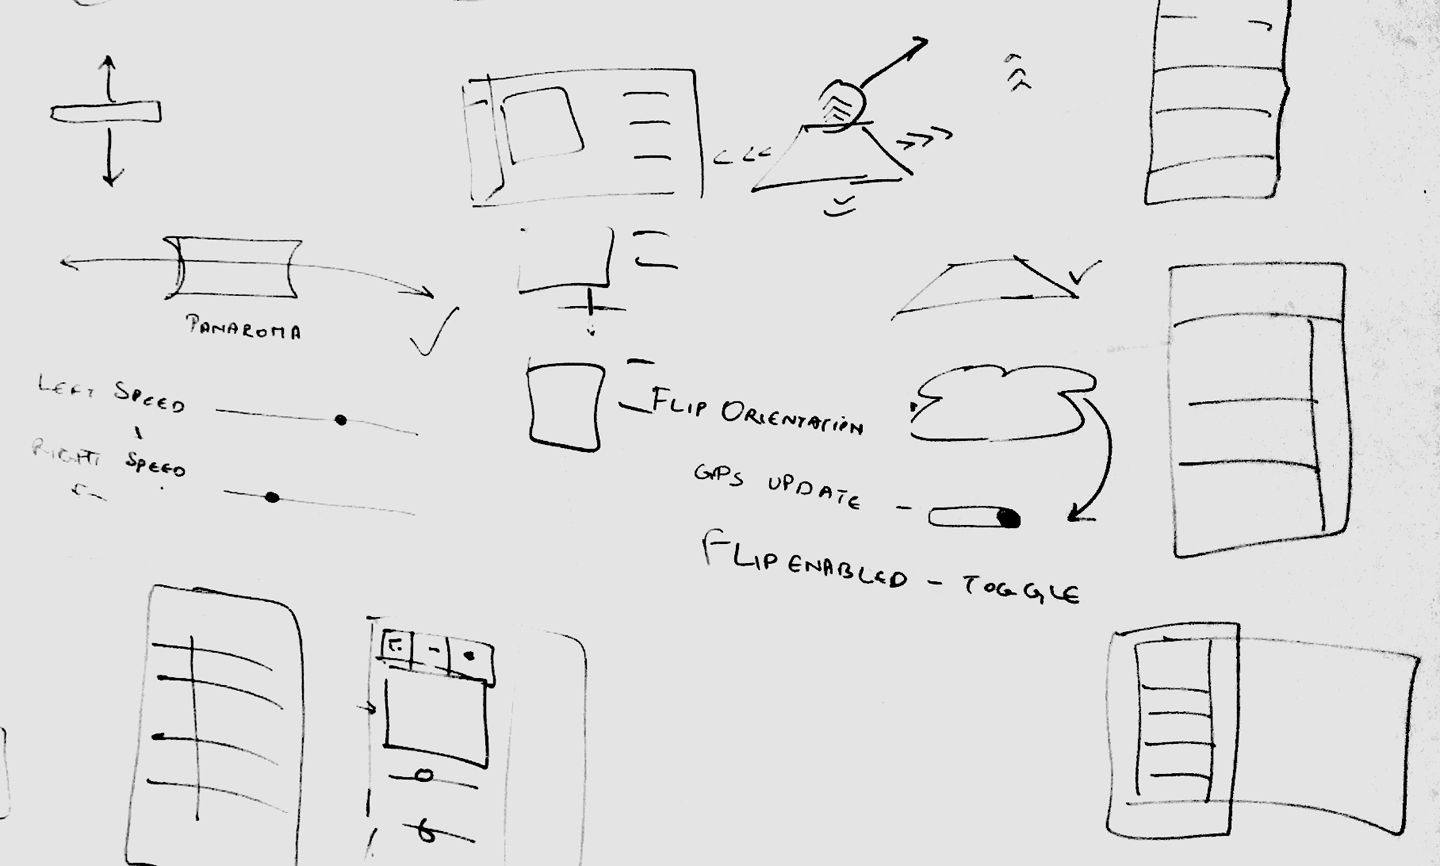 PANAROMA
LEFT SPEED
RIGHT SPEED
FLIP ORIENTATION
GPS UPDATE -
FLIP ENABLED - TOGGLE